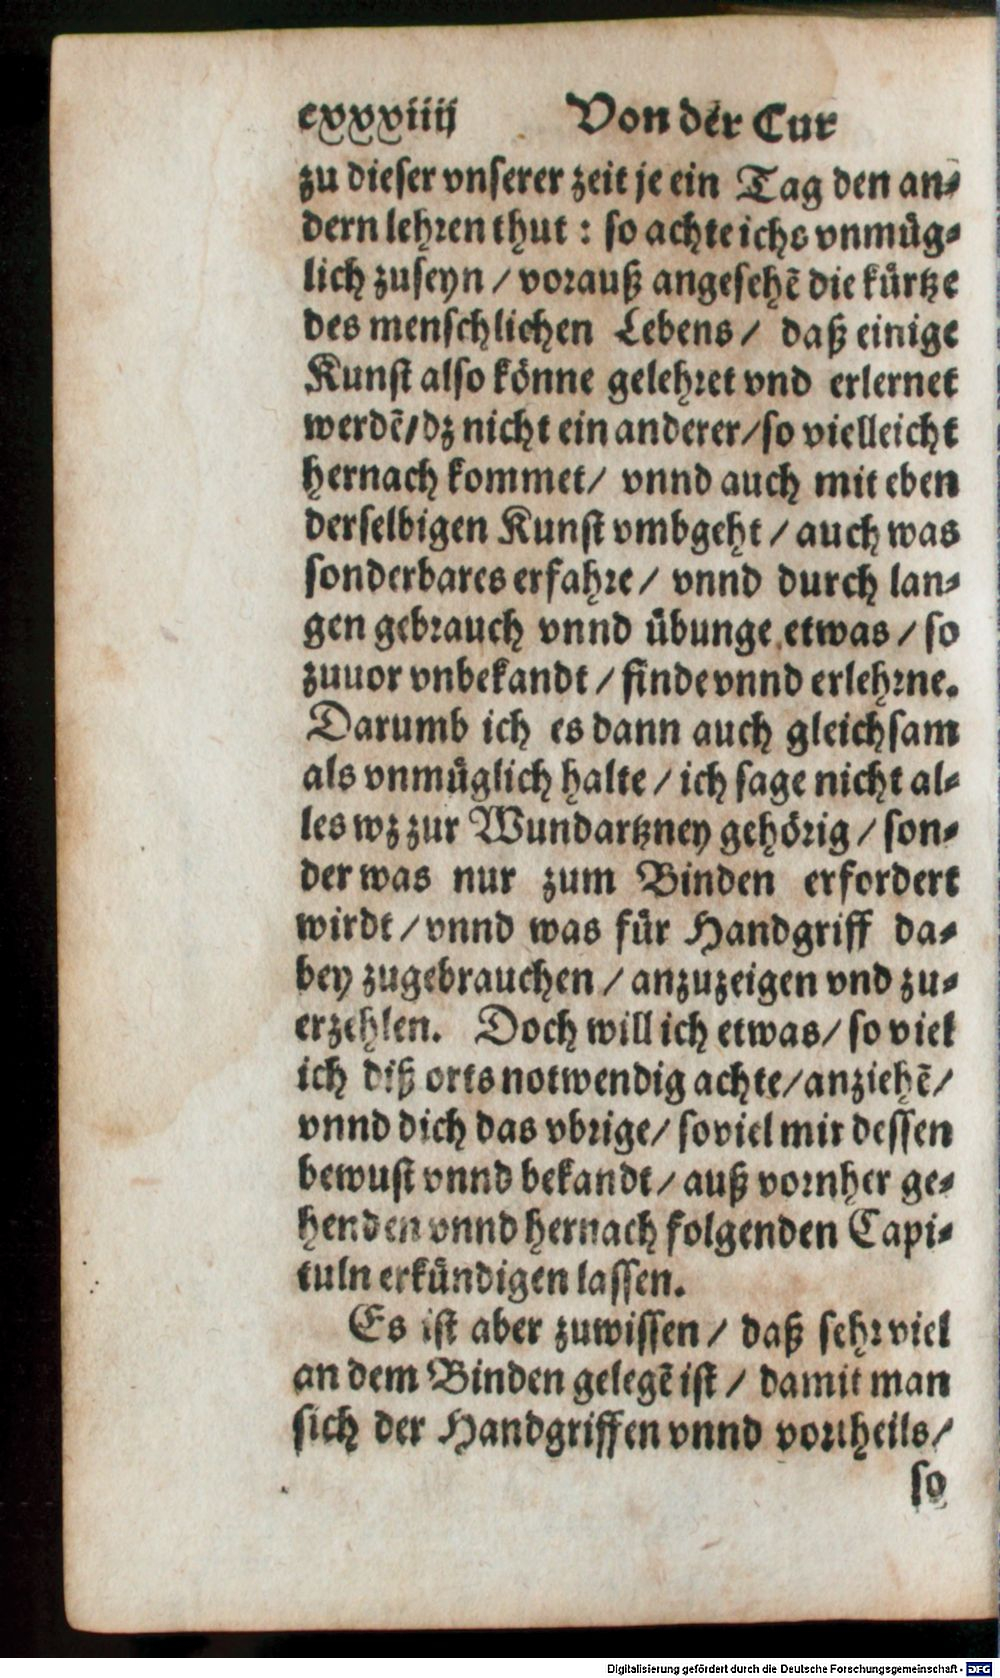 cxxxiiij Von der Cur
zu dieser vnserer zeit je ein Tag den an⸗
dern lehren thut : so achte ichs vnmüg⸗
lich zuseyn / vorauß angesehẽ die kürtze
des menschlichen Lebens / daß einige
Kunst also könne gelehret vnd erlernet
werdẽ / dz nicht ein anderer / so vielleicht
hernach kommet / vnnd auch mit eben
derselbigen Kunst vmbgeht / auch was
sonderbares erfahre / vnnd durch lan⸗
gen gebrauch vnnd übunge etwas / so
zuuor vnbekandt / finde vnnd erlehrne.
Darumb ich es dann auch gleichsam
als vnmüglich halte / ich sage nicht al⸗
les wz zur Wundartzney gehörig / son⸗
der was nur zum Binden erfordert
wirdt / vnnd was für Handgriff da⸗
bey zugebrauchen / anzuzeigen vnd zu⸗
erzehlen. Doch will ich etwas / so viel
ich diß orts notwendig achte / anziehẽ /
vnnd dich das vbrige / soviel mir dessen
bewust vnnd bekandt / auß vornher ge⸗
henden vnnd hernach folgenden Capi⸗
tuln erkündigen lassen.
Es ist aber zuwissen / daß sehr viel
an dem Binden gelegẽ ist / damit man
sich der Handgriffen vnnd vortheils /
so
Digitalisierung gefördert durch die Deutsche Forschungsgemeinschaft - DFG